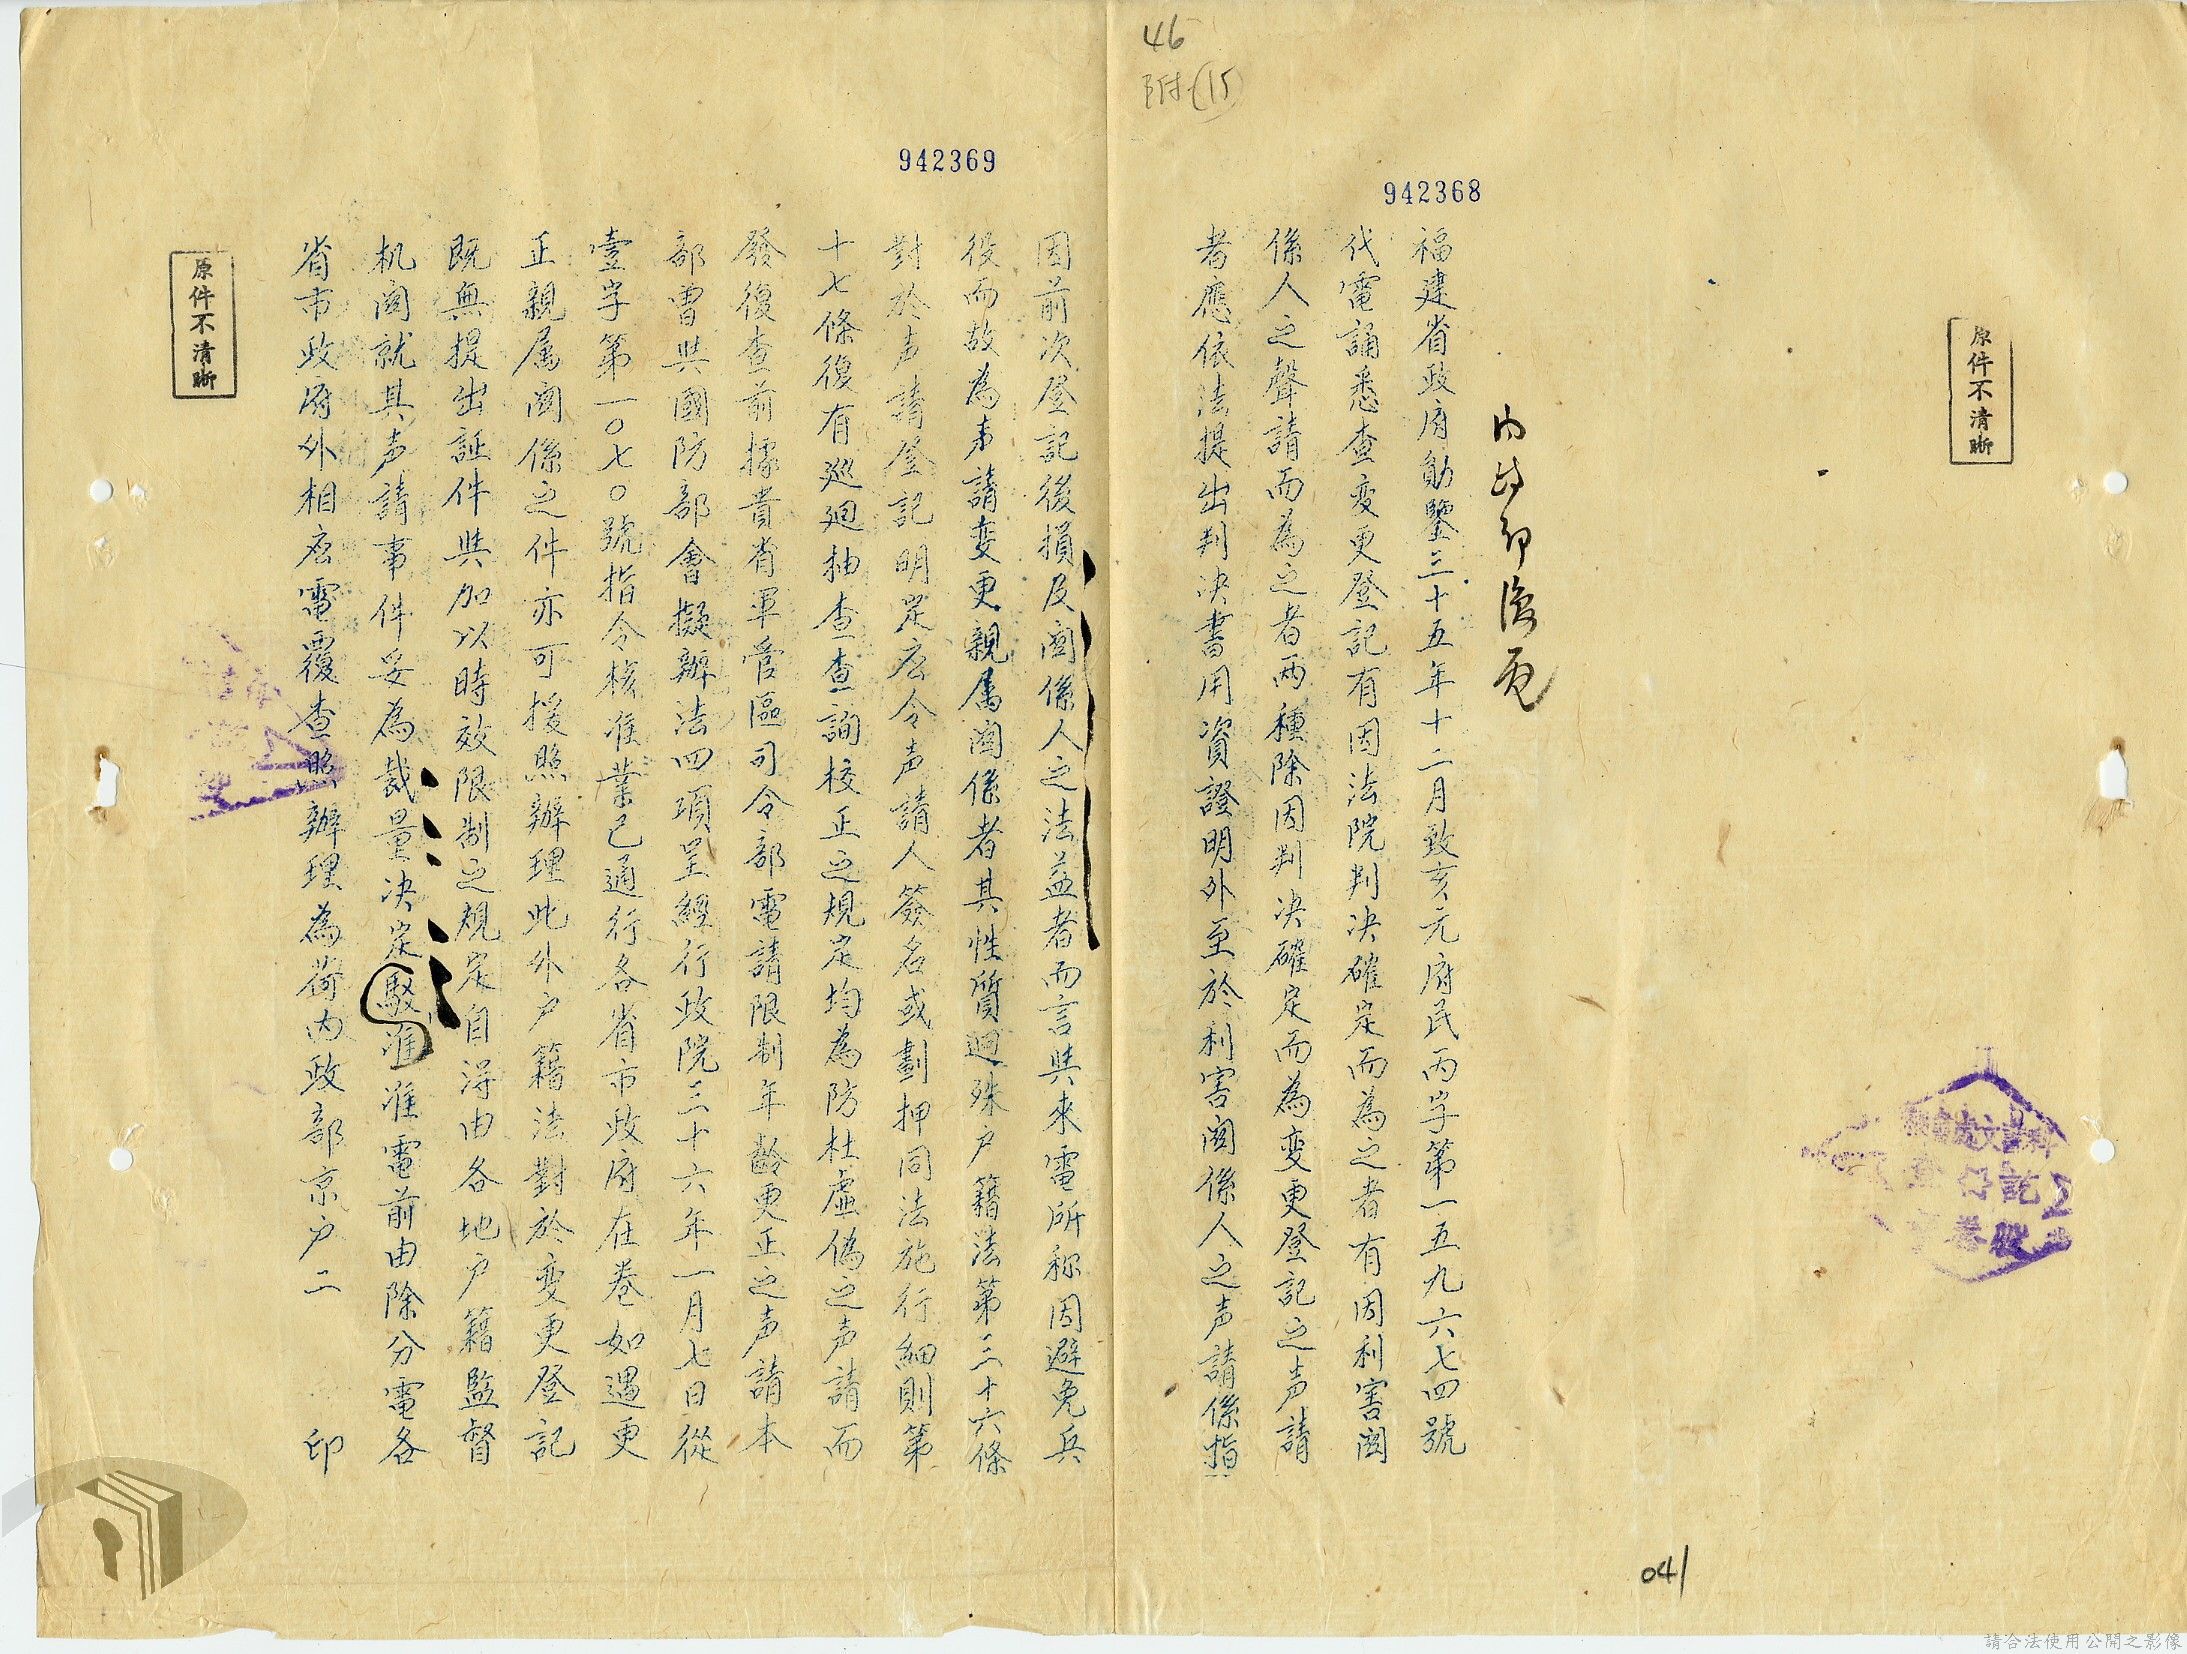 46
附(15)
942368
942369
原件不清晰
內政部復電
福建省政府勛鑒三十五年十二月致亥元府民丙字第一五九六七四號
代電誦悉查变更登記有因法院判决確定而為之者有因利害関
係人之聲請而為之者兩種除因判决確定而為变更登記之声請
者應依法提出判决書用資證明外至於利害関係人之声請係指
因前次登記後損及関係人之法益者而言與來電所称因避免兵
役而故為声請变更親属関係者其性質迥殊户籍法第三十六條
對於声請登記明定应令声請人簽名或劃押同法施行細則第
十七條復有巡迴抽查查詢校正之規定均為防杜虛偽之声請而
發復查前據貴省軍管區司令部電請限制年齡更正之声請本
部曾與國防部會擬辦法四項呈經行政院三十六年一月七日從
壹字第一〇七〇號指令核准業已通行各省市政府在卷如遇更
正親属関係之件亦可援照辦理此外户籍法對於变更登記
既無提出証件與加以時效限制之規定自得由各地户籍監督
机関就其声請事件妥為裁量决定駁准准電前由除分電各
省市政府外相应電覆查照辦理為荷內政部京户二　印
原件不清晰
041
請合法使用公開之影像